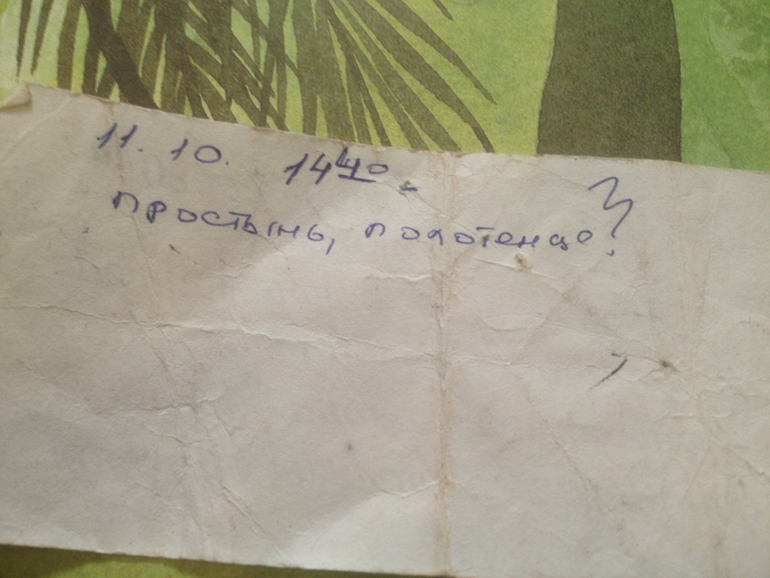 11. 10. 14 40.
простынь, полотенце?